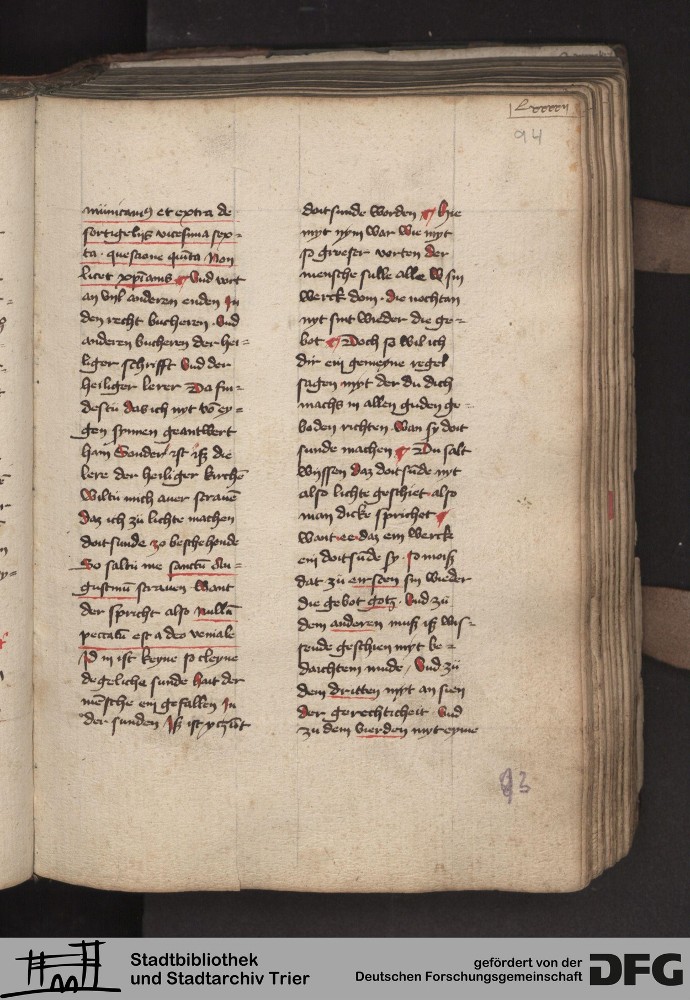 94
municamus et extra de
sortigelijs vicesima sex=
ta · questione quinta Non
licet xpianis Vnd vort
an vnl anderen enden In
den recht bucheren · Vnd
anderen bucheren der hei=
liger schrifft Vnd der
heiliger lerer Da fin=
destu das ich nyt vō ey=
gen synnen geantwert
hain Sonder ist iß die
lere der heiliger kirchē
Wiltu mich aner stranē
daz ich zů lichte machen
doitsunde zo beschehonde
So saltu me sanctū Au=
gustinū stranen Want
der spricht also Nullū
peccatū est a deo veniale
Id in ist keyne so cleyne
degeliche sunde hait der
mēsche ein gefallen In
der sunden Iß ist
doitsunde worden Hie
myt nym war wie myt
so groeser vorten der
mensche sulle alle
werck doin · die nochtan
nyt sint wieder die ge=
bot Doch so wil ich
dir ein gemeyne regel
sagen myt der du dich
machs in allen guden ge=
boden richten · wan sy doit
sunde machen Du salt
wyssen daz doitsūde nyt
also lichte geschiet · also
man dicke sprichet
Want · ee · daz ein werck
ein doitsūde sy · so moiß
dat zů eirsten sin wieder
die gebot gotz · Vnd zů
dem anderen muß iß wis=
sende geschien myt be=
dachtem mude / Vnd zů
dem dritten myt an sien
der gerechticheit · Vnd
zu dem vierden myt eyme
93
Stadtbibliothek
und Stadtarchiv Trier
gefördert von der
Deutschen Forschungsgemeinschaft
DFG